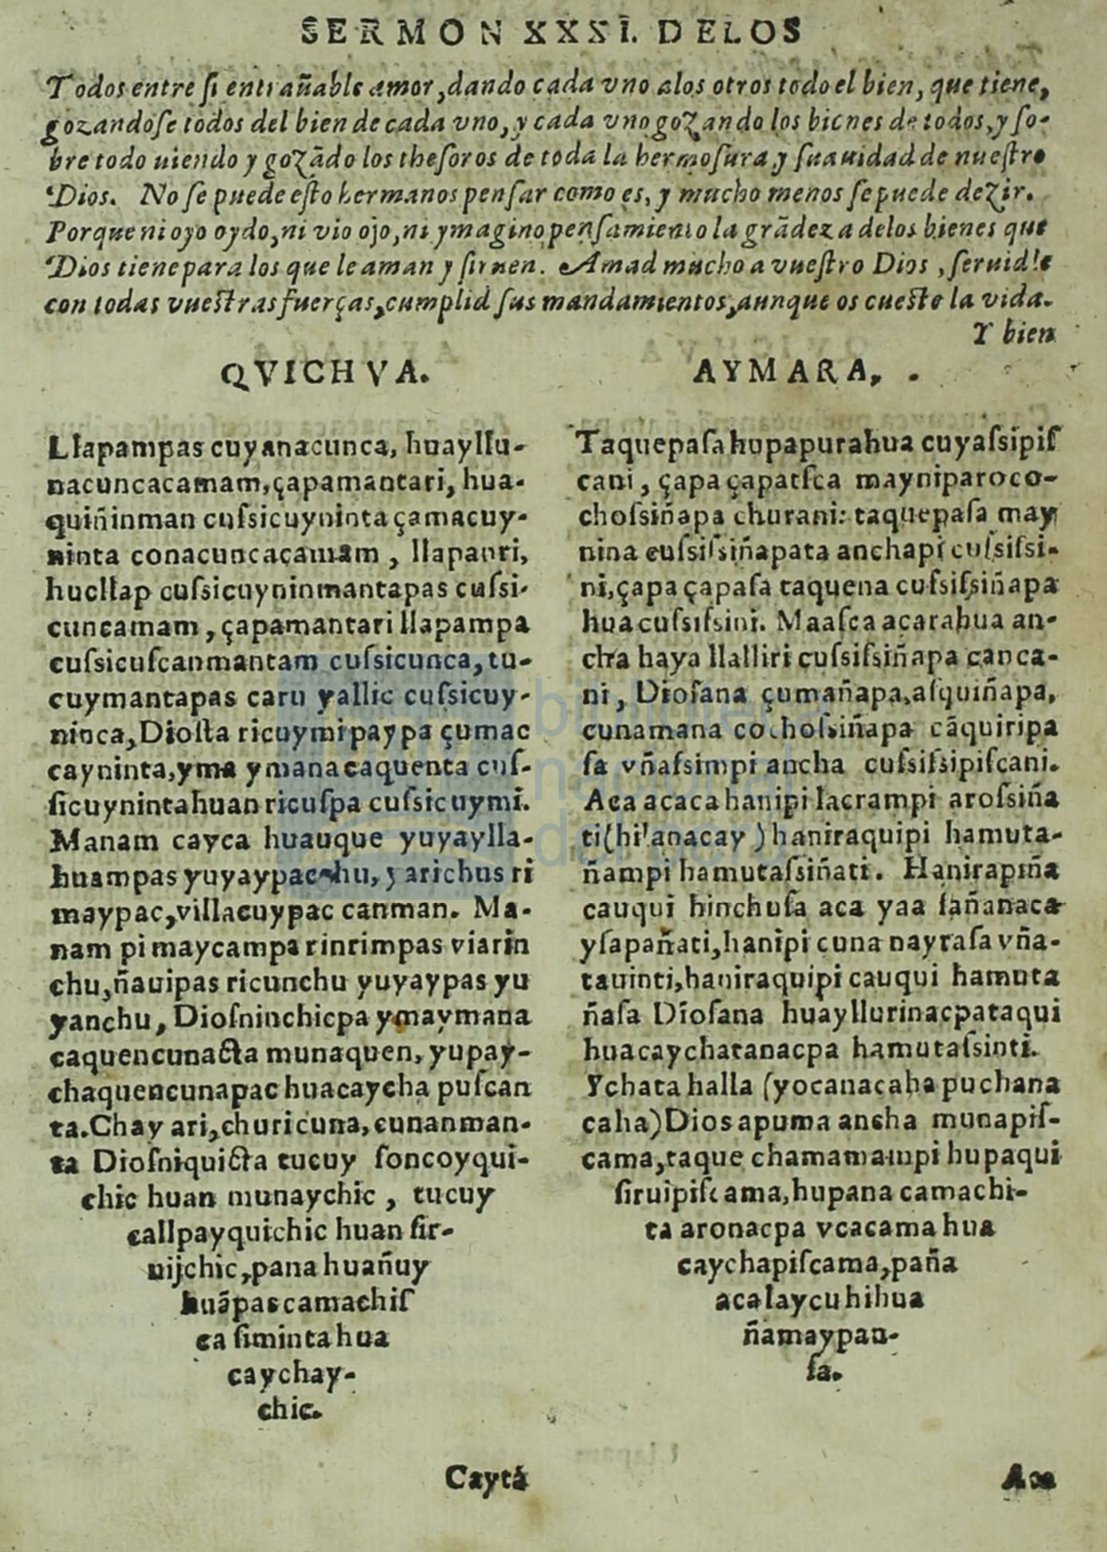 SERMON XXXI. DELOS
Todos entre ſi entrañable amor, dando cada vno alos otros todo el bien, que tiene,
gozandoſe todos del bien de cada vno, y cada vno gozando los bienes de todos, y ſo-
bre todo uiendo y gozãdo los theſoros de toda la hermoſura y ſuauidad de nueſtro
Dios. No ſe puede eſto hermanos penſar como es, y mucho menos ſe puede dezir.
Porque ni oyo oydo, ni vio ojo, ni ymagino penſamiento la grãdeza delos bienes que
Dios tiene para los que le aman y ſiruen. Amad mucho a vueſtro Dios, ſeruidle
con todas vueſtras fuerças, cumplid ſus mandamientos, aunque os cueſte la vida.
Y bien
QVICHVA.
Llapampas cuyanacunca, huayllu-
nacuncacamam, çapamantari, hua-
quiñinman cuſsicuyninta çamacuy-
ninta conacuncaçamam, llapanri,
hucllap cuſsicuyninmantapas cuſsi-
cuncamam, çapamantari llapampa
cuſsicuſcanmantam cuſsicunca, tu-
cuymantapas caru yallic cuſsicuy-
ninca, Dioſta ricuymi paypa çumac
cayninta, yma ymana caquenta cuſ-
ſicuynintahuan ricuſpa cuſsicuymi.
Manam cayca huauque yuyaylla-
huampas yuyaypac chu, y arichus ri
maypac, villacuypac canman. Ma-
nam pi maycampa rinrimpas viarin
chu, ñauipas ricunchu yuyaypas yu
yanchu, Dioſninchicpa ymaymana
caquencunacta munaquen, yupay-
chaquencunapac huacaycha puſcan
ta. Chay ari, churicuna, cunanman-
ta Dioſniquicta tucuy ſoncoyqui-
chic huan munaychic, tucuy
callpayquichic huan ſir-
uijchic, pana huañuy
huãpas camachiſ
ca ſiminta hua
caychay-
chic.
Caytá
AYMARA,.
Taquepaſa hupapurahua cuyaſsipiſ
cani, çapa çapatſca mayniparoco-
choſsiñapa churani: taquepaſa may
nina cuſsiſsiñapata anchapi cuſsiſsi-
ni, çapa çapaſa taquena cuſsiſsiñapa
hua cuſsiſsini. Maaſca acarahua an-
cha haya llalliri cuſsiſsiñapa canca-
ni, Dioſana çumañapa, aſquiñapa,
cunamana cochoſsiñapa cãquiripa
ſa vñaſsimpi ancha cuſsiſsipiſcani.
Aca acaca hanipi lacrampi aroſsiña
ti (hilanacay) haniraquipi hamuta-
ñampi hamutaſsiñati. Hanirapiña
cauqui hinchuſa aca yaa ſañanaca
yſapañati, hanipi cuna nayraſa vña-
tauinti, haniraquipi cauqui hamuta
ñaſa Dioſana huayllurinacpataqui
huacaychatanacpa hamutaſsinti.
Ychata halla (yocanacaha puchana
caha) Dios apuma ancha munapiſ-
cama, taque chamamampi hupaqui
ſiruipiſcama, hupana camachi-
ta aronacpa vcacama hua
caychapiſcama, paña
aca laycu hihua
ñamaypan-
ſa.
Aca